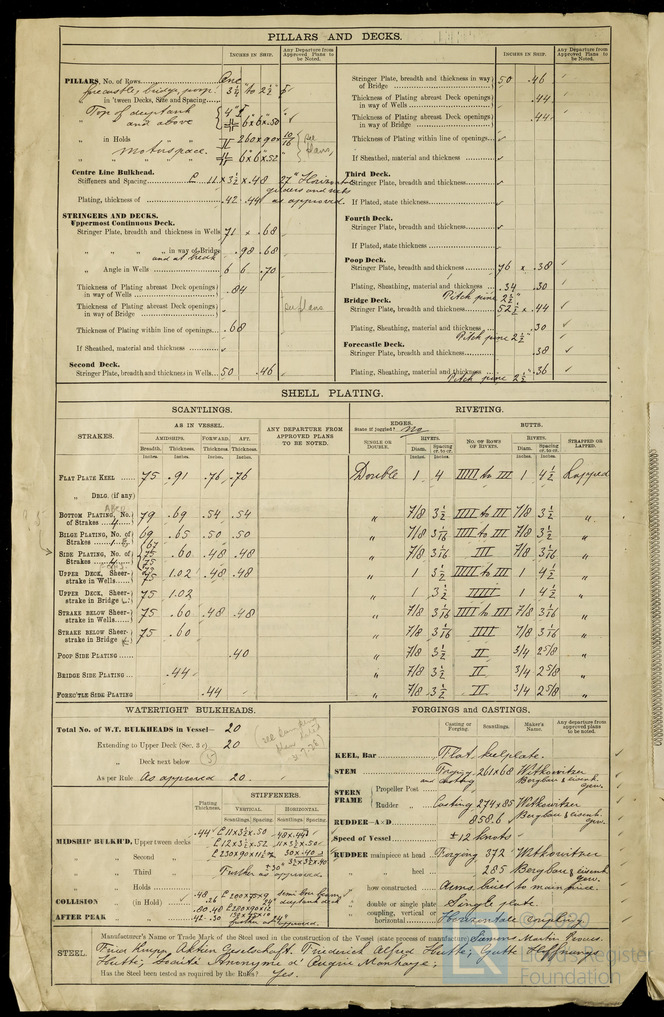 PILLARS AND DECKS.
INCHES IN SHIP.
Any Departure from Approved Plans to be Noted.
PILLARS, No. of Rows One
forecastle, bridge, poop
in 'tween Decks, Size and Spacing
Top of deeptank
and above
„ in Holds
Motorspace.
Centre Line Bulkhead.
Stiffeners and Spacing 11 x 3½ x .48 27" Horizontal
girders and webs
Plating, thickness of .42 .44 as approved.
STRINGERS AND DECKS.
Uppermost Continuous Deck.
Stringer Plate, breadth and thickness in Wells 71 x .68
„ „ „ „ in way of Bridge .98 .68
and at break
„ Angle in Wells 6 6 .70
Thickness of Plating abreast Deck openings in way of Wells .84
Thickness of Plating abreast Deck openings in way of Bridge
Thickness of Plating within line of openings .68
If Sheathed, material and thickness
Second Deck.
Stringer Plate, breadth and thickness in Wells 50 .46
INCHES IN SHIP.
Any Departure from Approved Plans to be Noted.
Stringer Plate, breadth and thickness in way of Bridge 50 .46
Thickness of Plating abreast Deck openings in way of Wells .44
Thickness of Plating abreast Deck openings in way of Bridge .44
Thickness of Plating within line of openings
If Sheathed, material and thickness
Third Deck.
Stringer Plate, breadth and thickness
If Plated, state thickness
Fourth Deck.
Stringer Plate, breadth and thickness
If Plated, state thickness
Poop Deck.
Stringer Plate, breadth and thickness 76 x .38
Plating, Sheathing, material and thickness .34 .30
Pitch pine 2½"
Bridge Deck.
Stringer Plate, breadth and thickness 52½ x .44
Plating, Sheathing, material and thickness .30
Pitch pine 2½"
Forecastle Deck.
Stringer Plate, breadth and thickness .38
Plating, Sheathing, material and thickness .36
Pitch pine 2½"
SHELL PLATING.
SCANTLINGS.
RIVETING.
STRAKES.
AS IN VESSEL.
AMIDSHIPS. FORWARD. AFT.
Breadth. Thickness. Thickness. Thickness.
Inches. Inches. Inches. Inches.
ANY DEPARTURE FROM APPROVED PLANS TO BE NOTED.
EDGES.
State if joggled? No
SINGLE OR DOUBLE.
RIVETS.
Diam. Spacing cr. to cr.
Inches. Inches.
BUTTS.
NO. OF ROWS OF RIVETS.
RIVETS.
Diam. Spacing cr. to cr.
Inches. Inches.
STRAPPED OR LAPPED.
FLAT PLATE KEEL 75 .91 .76 .76 Double 1 4 IIIII to III 1 4½ Lapped
„ DBLG. (if any)
BOTTOM PLATING, No. of Strakes 4 79 .69 .54 .54 „ 7/8 3½ IIII to III 7/8 3½ „
BILGE PLATING, No. of Strakes 69 .65 .50 .50 „ 7/8 3 5/16 IIII to III 7/8 3½ „
SIDE PLATING, No. of Strakes 75 .60 .48 .48 „ 7/8 3 5/16 III 7/8 3 5/16 „
UPPER DECK, Sheerstrake in Wells 75 1.02 .48 .48 „ 1 3½ IIIII to III 1 4½ „
UPPER DECK, Sheerstrake in Bridge 75 1.02 „ 1 3½ IIIII 1 4½ „
STRAKE BELOW Sheerstrake in Wells 75 .60 .48 .48 „ 7/8 3 5/16 IIII to III 7/8 3 5/16 „
STRAKE BELOW Sheerstrake in Bridge 75 .60 „ 7/8 3 5/16 IIII 7/8 3 5/16 „
POOP SIDE PLATING .40 „ 7/8 3½ II 3/4 2 5/8 „
BRIDGE SIDE PLATING .44 „ 7/8 3½ II 3/4 2 5/8 „
FOREC'TLE SIDE PLATING .44 „ 7/8 3½ II 3/4 2 5/8 „
WATERTIGHT BULKHEADS.
Total No. of W.T. BULKHEADS in Vessel— 20
Extending to Upper Deck (Sec. 3 c) 20
„ Deck next below
As per Rule As approved 20
Plating Thickness.
STIFFENERS.
VERTICAL HORIZONTAL
Scantlings. Spacing. Scantlings. Spacing.
MIDSHIP BULKH'D, Upper tween decks .44 11 x 3½ x .50 48 x .44
„ Second „
„ Third „ Further as approved
„ Holds
COLLISION „ (in Hold)
AFTER PEAK „ „
further as approved.
FORGINGS and CASTINGS.
Casting or Forging. Scantlings. Maker's Name. Any departure from approved plans to be noted.
KEEL, Bar Flat keelplate.
STEM Forging 261 x 68 Witkowitzer
and casting Bergbau & eisenh. gew.
STERN FRAME Propeller Post
Rudder „ Casting 274 x 85 Witkowitzer
RUDDER—A x D 858.6 Bergbau & eisenh. gew.
Speed of Vessel ±12 knots
RUDDER mainpiece at head Forging 372 Witkowitzer
„ „ heel 285 Bergbau & eisenh. gew.
„ how constructed Arms built to main piece.
„ double or single plate Single plate.
„ coupling, vertical or horizontal Horizontale coupling
STEEL.
Manufacturer's Name or Trade Mark of the Steel used in the construction of the Vessel (state process of manufacture) Siemens Martin Process.
Fried Krupp Aktien Gesellschaft. Friedrich Alfred Hutte; Gutte Hoffnungs
Hutte; Société Anonyme d'Ougrée Marihaye;
Has the Steel been tested as required by the Rules? Yes.
© 2020
Lloyd's Register
Foundation